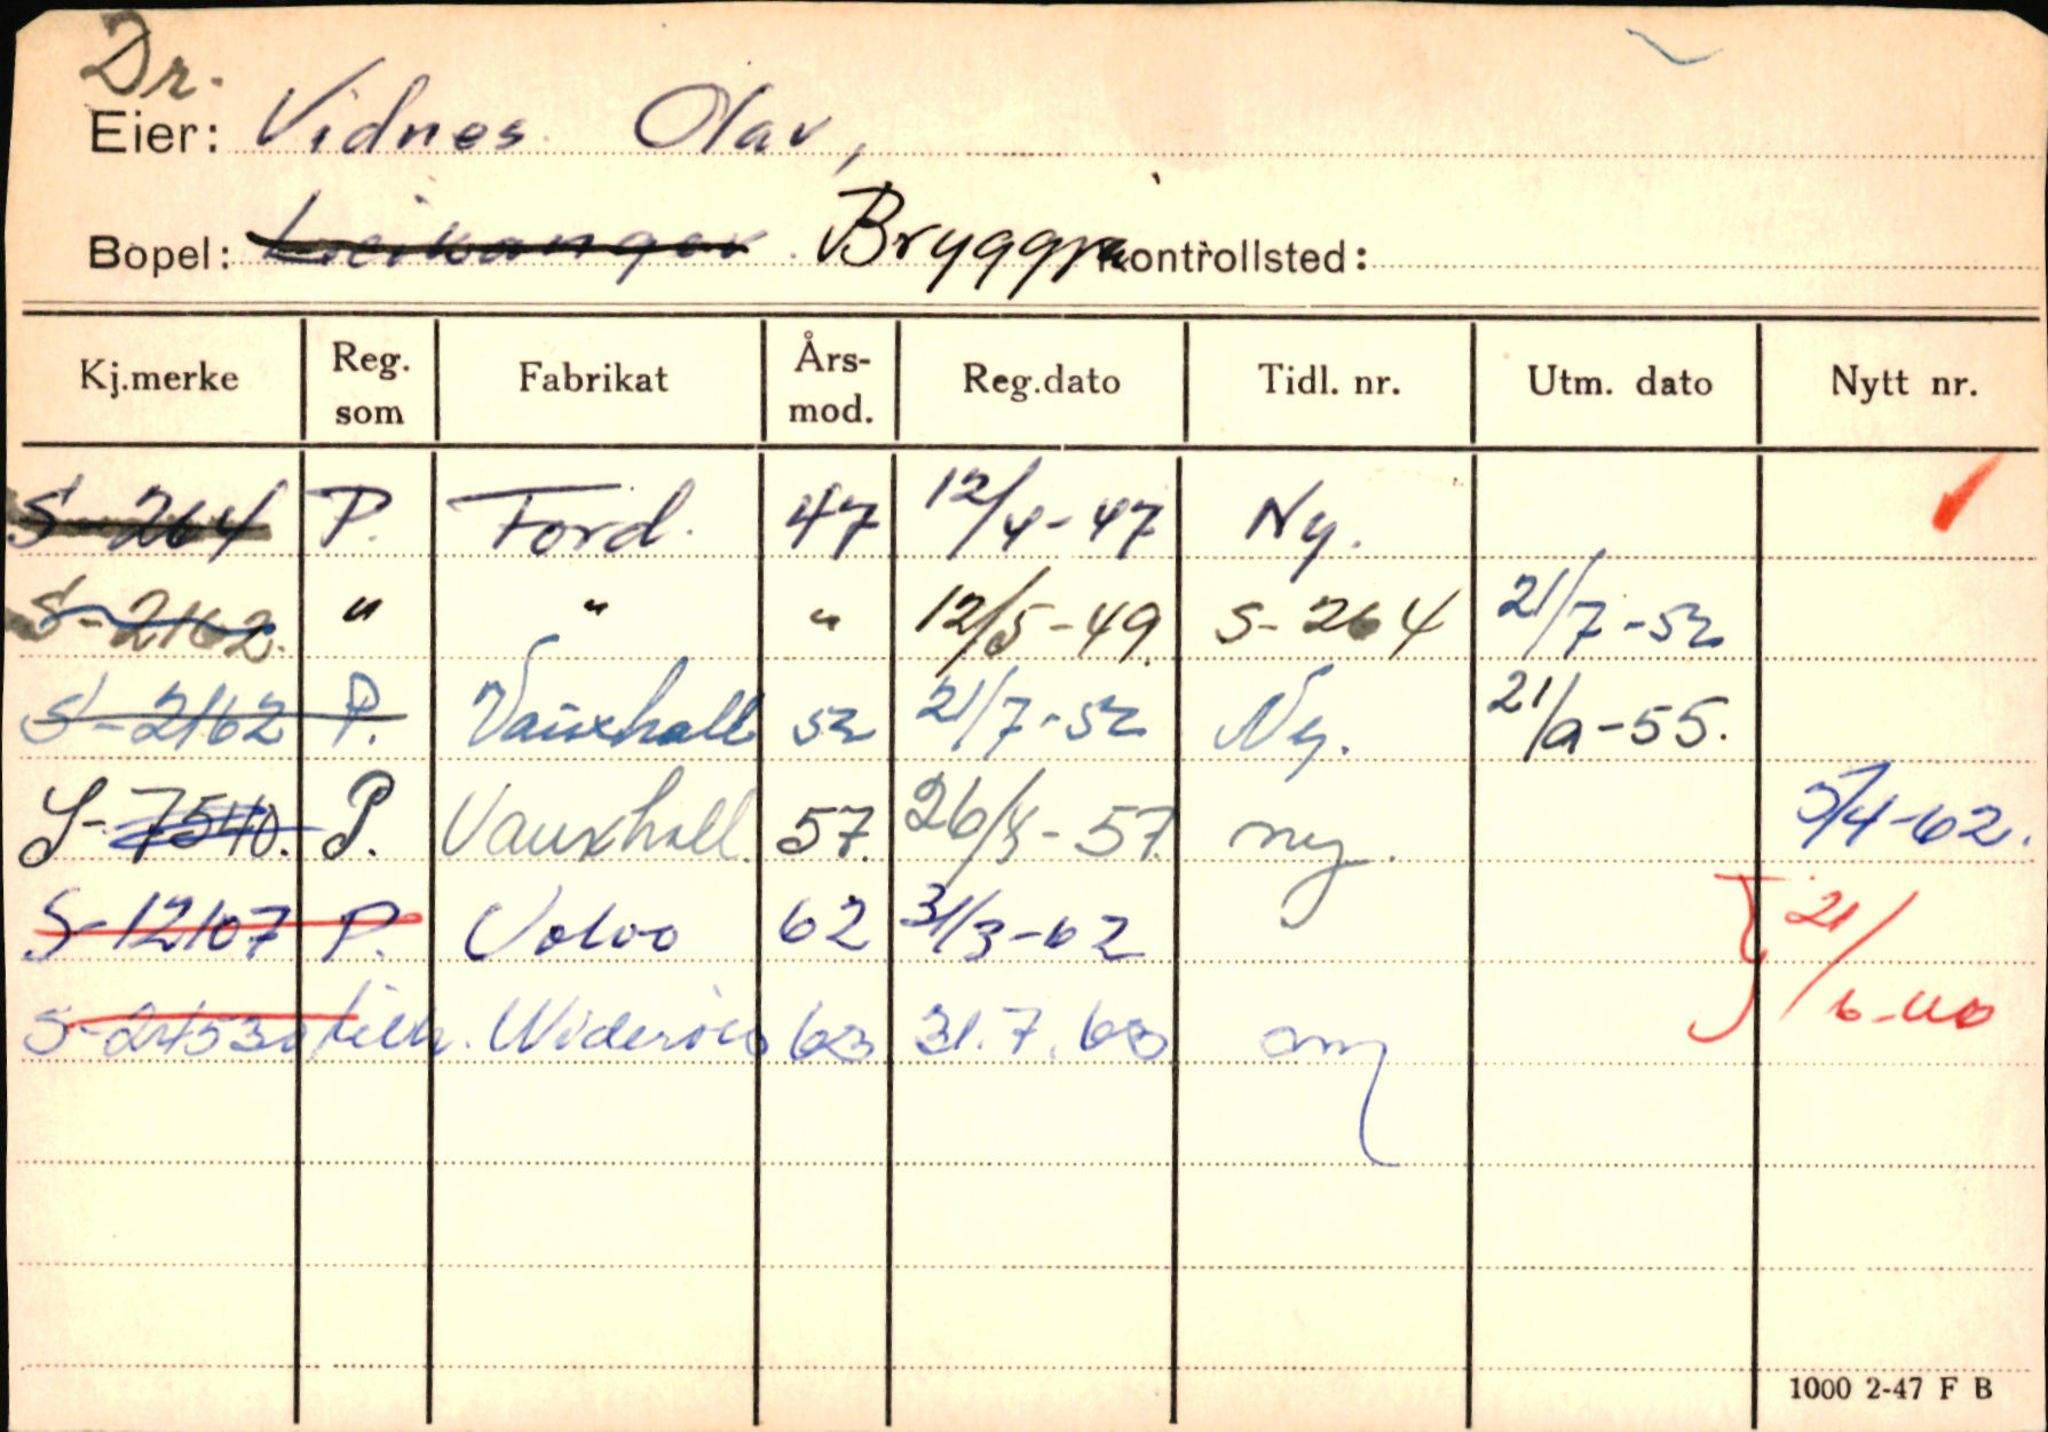 Dr.
Eier: Vidnes Olav,
Bopel: Leikanger Bryggja Kontrollsted:
Kj.merke Reg. som Fabrikat Års-mod. Reg.dato Tidl. nr. Utm. dato Nytt nr.
S-264 P. Ford. 47 12/4-47 Ny.
S-2162. " " " 12/5-49. S-264 21/7-52
S-2162 P. Vauxhall 52 21/7-52 Ny. 21/9-55.
S-7540. P. Vauxhall. 57. 26/4-57. ny. 5/4-62.
S-12107 P. Volvo 62 31/3-62 21/
S-24530 tilh. Widerøes 63 31.7.63
1000 2-47 F B